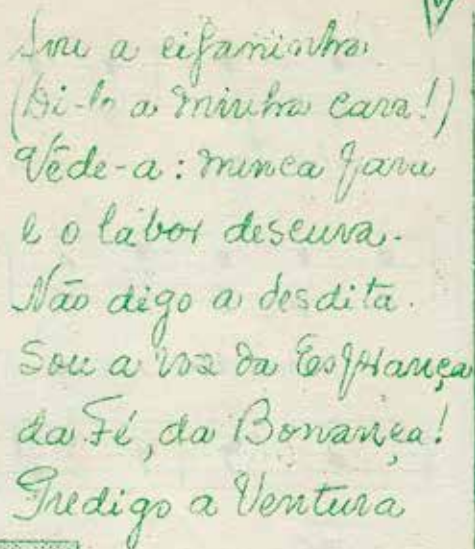 Sou a cifaninha
(Di-lo a minha cara!)
Vêde-a: nunca para
e o labor descura.
Não digo a desdita.
Sou a voz da Esp'rança
da Fé, da Bonança!
Predigo a Ventura